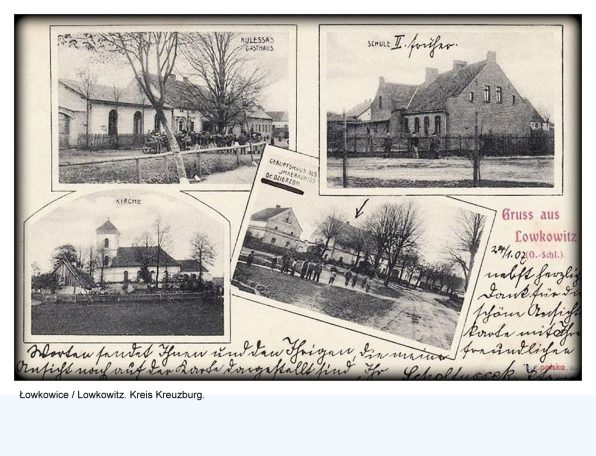 KULESSA'S
GASTHAUS
SCHULE II. früher.
KIRCHE
GEBURTSHAUS DES
IMKERKÖNIGS
Dr. DZIERZON
Gruss aus
Lowkowitz
(O.-Schl.)
nebst herzlich
Dank für die
schöne Ansichts
karte mit Ihren
freundlichen
Worten sendet Ihnen und den Ihrigen die meine
Ansicht noch auf der Karte dargestellt sind Ihr
Scholtyssek
polska
Łowkowice / Lowkowitz. Kreis Kreuzburg.